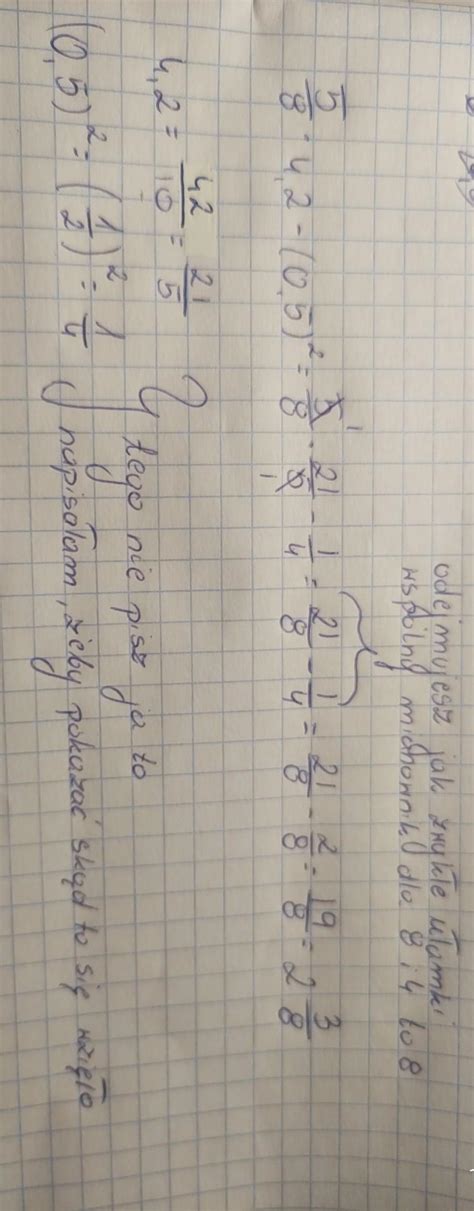 odejmujesz jak zwykłe ułamki
wspólny mianownik dla 8 i 4 to 8
5/8 · 4,2 - (0,5)² = 5/8 · 21/5 - 1/4 = 21/8 - 1/4 = 21/8 - 2/8 = 19/8 = 2 3/8
1
1
4,2 = 42/10 = 21/5
tego nie pisz ja to
(0,5)² = (1/2)² = 1/4
napisałam, żeby pokazać skąd to się wzięło